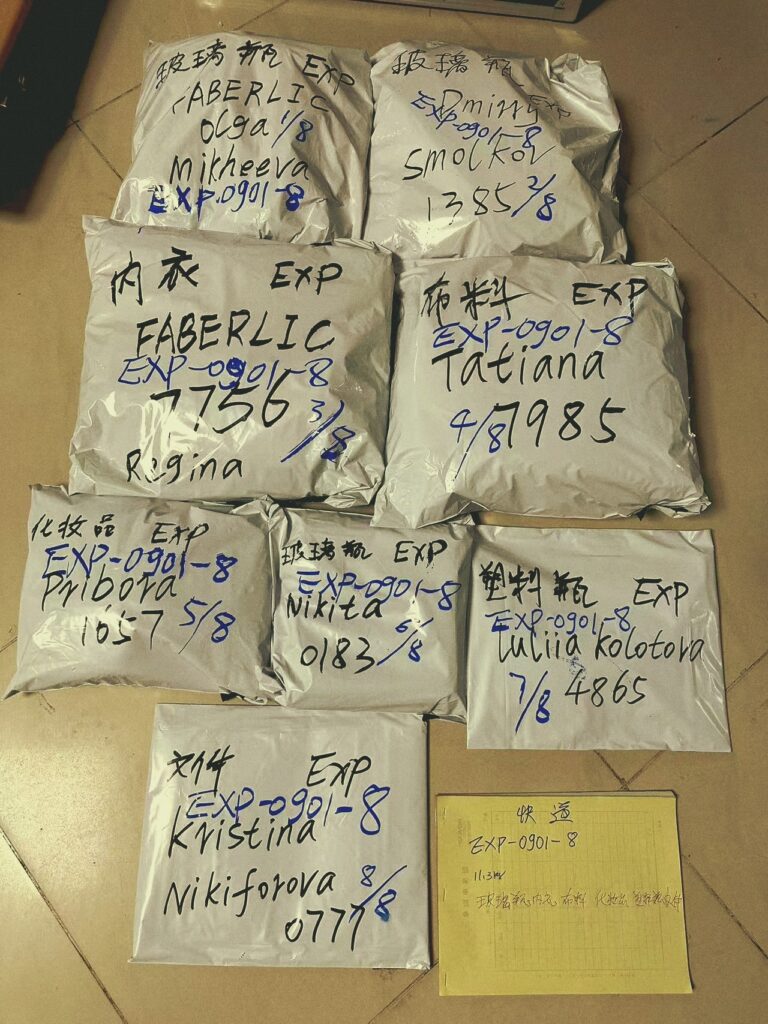 玻璃瓶 EXP
FABERLIC
Olga 1/8
Mikheeva
EXP-0901-8
玻璃瓶 EXP
EXP-0901-8
Smolkov
1385 2/8
内衣 EXP
FABERLIC
EXP-0901-8
7756 3/8
Regina
布料 EXP
EXP-0901-8
Tatiana
4/8 7985
化妆品 EXP
EXP-0901-8
Pribora
1657 5/8
玻璃瓶 EXP
EXP-0901-8
Nikita
0183 6/8
塑料瓶 EXP
EXP-0901-8
Iuliia Kolotova
7/8 4865
文件 EXP
EXP-0901-8
Kristina
Nikiforova 8/8
0777
快运
EXP-0901-8
玻璃瓶 内衣 布料 化妆品